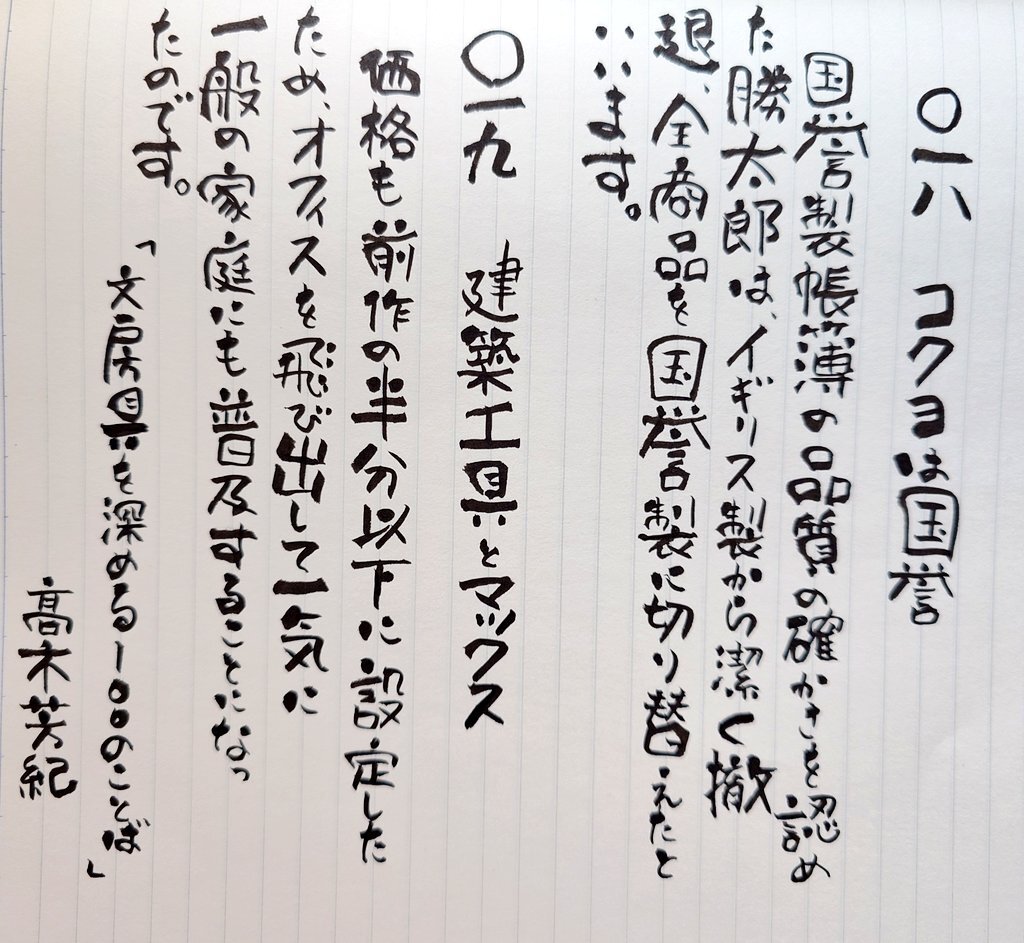 〇一八 コクヨは国誉
国誉製帳簿の品質の確かさを認め
た勝太郎は、イギリス製から潔く撤
退、全商品を国誉製に切り替えたと
いいます。
〇一九 建築工具とマックス
価格も前作の半分以下に設定した
ため、オフィスを飛び出して一気に
一般の家庭にも普及することになっ
たのです。
「文房具を深める一〇〇のことば」
高木芳紀